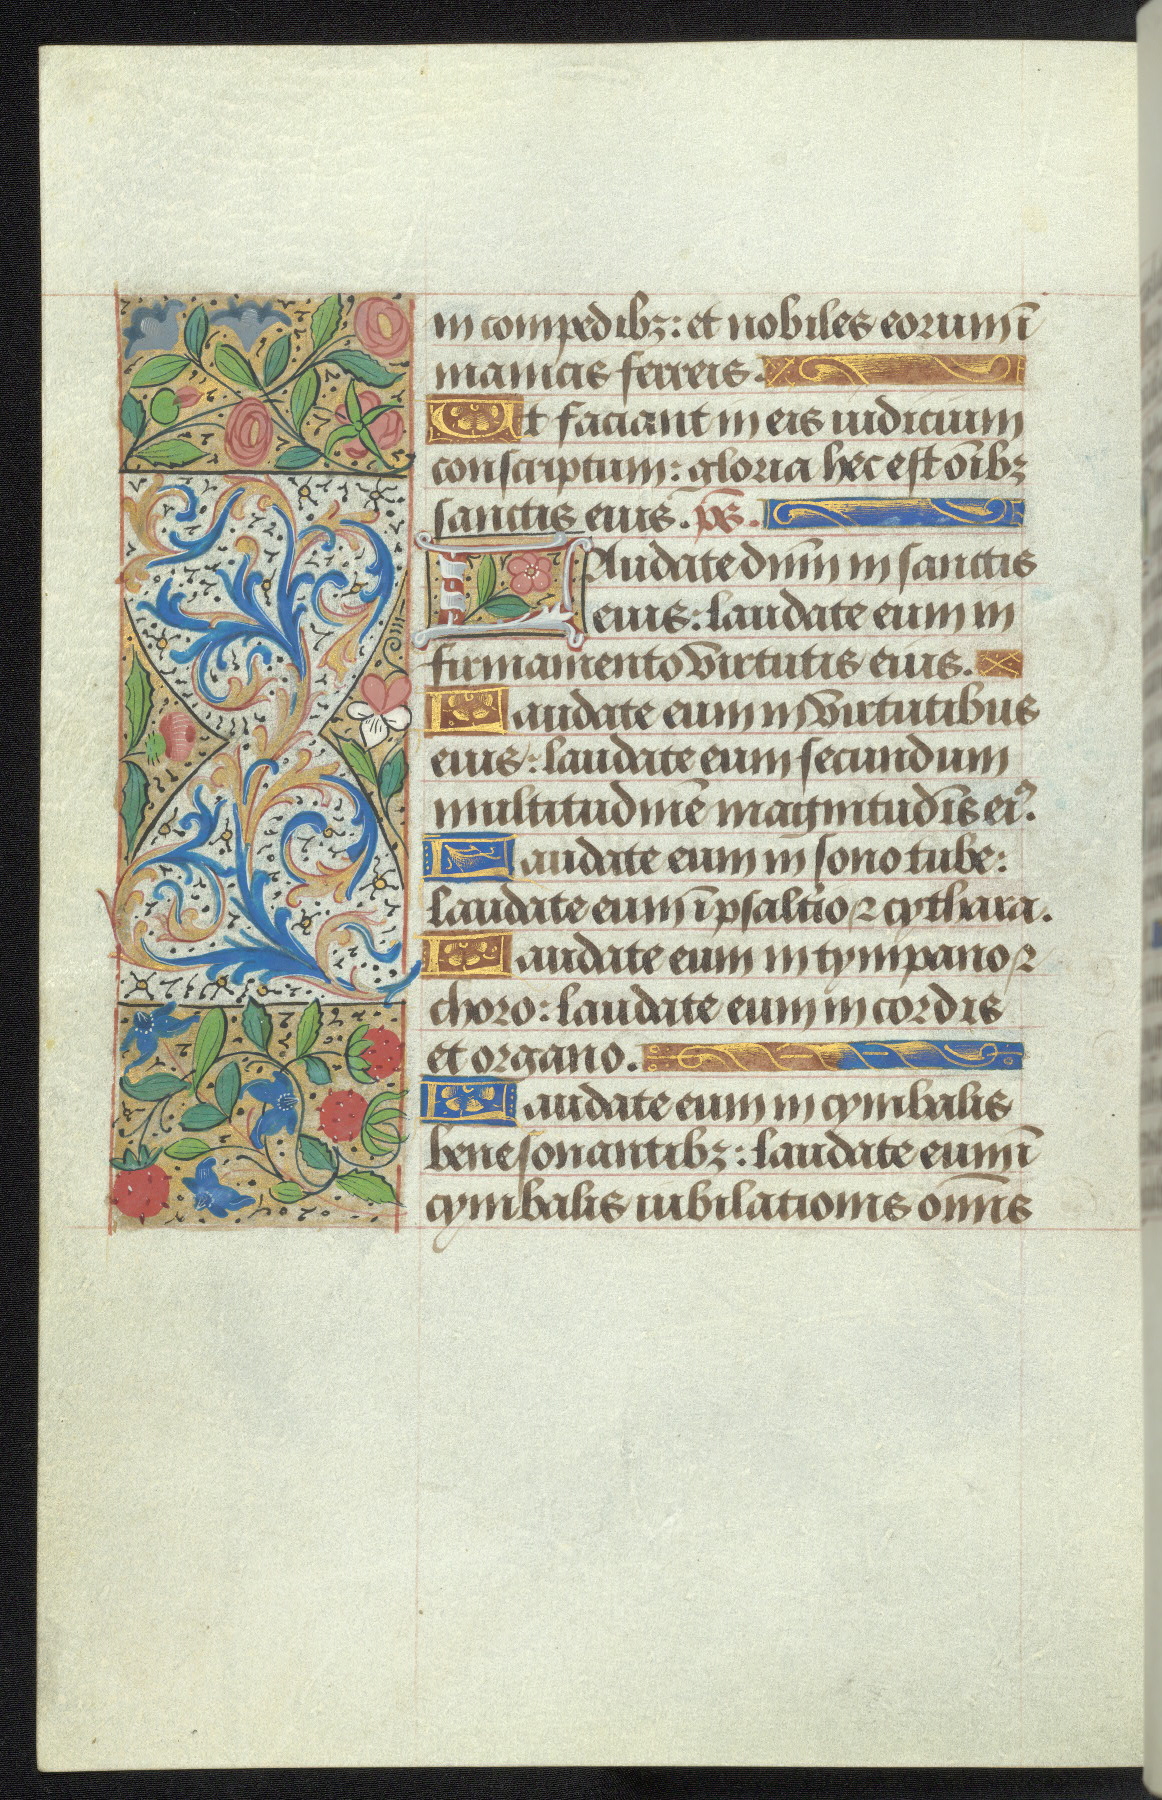 in compedibꝫ: et nobiles eorum ī
manicis ferreis.
Ut faciant in eis iudicium
conscriptum: gloria hec est oībꝫ
sanctis eius. p̄s.
LAudate dn̄m in sanctis
eius: laudate eum in
firmamento virtutis eius.
Laudate eum in virtutibus
eius: laudate eum secundum
multitudinē magnitudīs eiꝰ.
Laudate eum in sono tube:
laudate eum ī psalt̄io ⁊ cythara.
Laudate eum in tympano ⁊
choro: laudate eum in cordis
et organo.
Laudate eum in cymbalis
benesonantibꝫ: laudate eum ī
cymbalis iubilationis om̄is